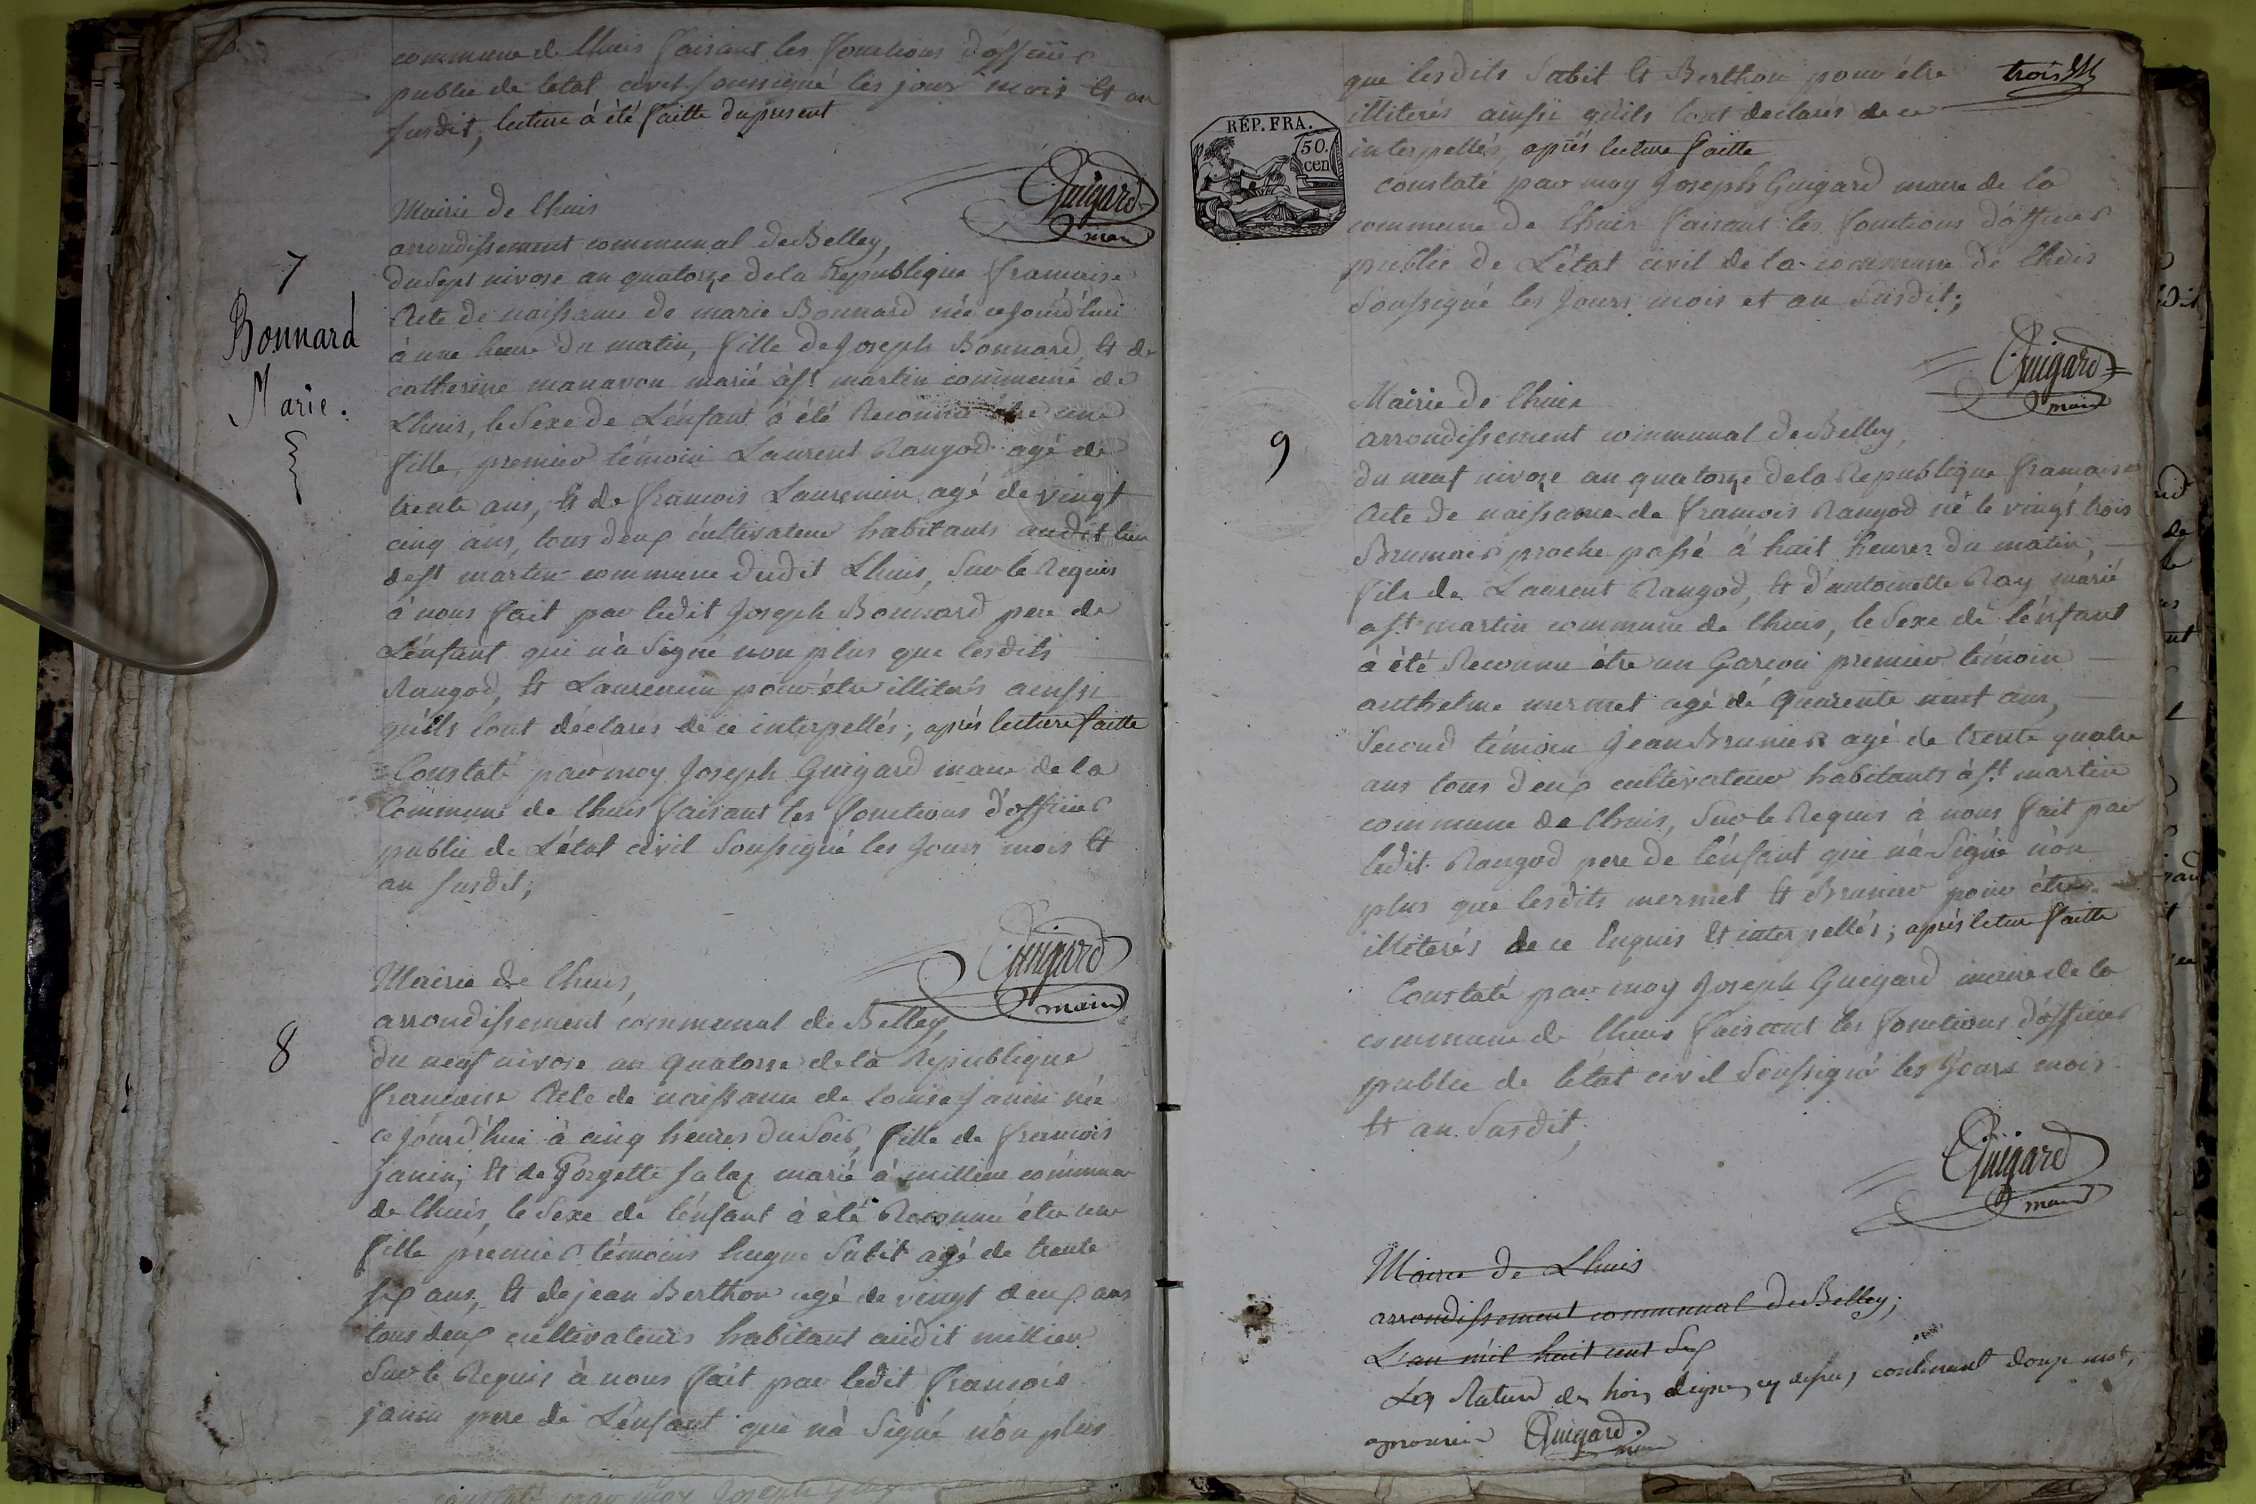 commune de lhuis faisant les fonctions d'officier
public de l'état civil soussigné les jour mois et an
susdit, lecture à été faitte du présent
Guigard
maire
Mairie de lhuis
arrondissement communal de Belley,
du sept nivose an quatorze de la République francaise
7
Bonnard
Marie.
Acte de naissance de marie Bonnard née cejourd'hui
à une heure du matin, fille de Joseph Bonnard, et de
catherine manavon marié à st martin commune de
Lhuis, le sexe de L'énfant à été Reconnu être une
fille, premier témoin Laurent Rangod agé de
trente ans, et de francois Laurencin agé de vingt
cinq ans, tous deux cultivateur habitants audit lieu
de st martin commune dudit Lhuis, sur le Requis
à nous fait par ledit Joseph Bonnard pere de
L'énfant qui n'à signé non plus que lesdits
Rangod, et Laurencin pour être illiterés ainssi
qu'ils lont déclarés de ce interpellés, aprés lecture faitte
Constaté par moy Joseph Guigard maire de la
Commune de lhuis faisant les fonctions d'officier
public de L'état civil soussigné les jours mois et
an susdit;
Guigard
maire
Mairie de lhuis,
arrondissement communal de Belley
8
du neuf nivose an quatorse de la République
francaise Acte de naissance de Louise janin née
cejourd'hui à cinq heures du soir, fille de francois
janin, et de Gorgette salaz marié à millieu commune
de lhuis, le sexe de l'énfant à été Reconnu être une
fille premier témoins hugue Sabit agé de trente
six ans, et de jean Berthon agé de vingt deux ans
tous deux cultivateurs habitant audit millieu
sur le Requis à nous fait par ledit francois
janin pere de L'énfant qui n'à signé non plus
trois
que lesdits Sabit et Berthon pour être
illiterés ainssi qu'ils lont declarés de ce
interpellés, aprés lecture faitte
RÉP. FRA.
50.
cen
constaté par moy Joseph Guigard maire de la
commune de lhuis faisant les fonctions d'officier
public de L'état civil de la commune de lhuis
soussigné les jours mois et an susdit;
Guigard
maire
Mairie de lhuis
arrondissement communal de Belley,
9
du neuf nivoze an quatorze de la République francaise
Acte de naissance de francois Rangod né le vingt trois
Brumair proche passé à huit heures du matin,
fils de Laurent Rangod, et d'antoinette Ray marié
a st martin commune de lhuis, le sexe de l'énfant
à été Reconnu être un Garcon premier témoin
anthelme mermet agé de quarente neuf ans,
second témoin jean Brunier agé de trente quatre
ans tous deux cultivateur habitants à st martin
commune de lhuis, sur le Requis à nous fait par
ledit Rangod pere de l'énfant qui n'à signé non
plus que lesdits mermet et Brunier pour être
illiterés de ce Enquis et interpellés; aprés lecture faitte
Constaté par moy Joseph Guigard maire de la
commune de lhuis faisant les fonctions d'officier
public de l'état civil soussigné les jours mois
et an susdit;
Guigard
maire
Mairie de Lhuis
arrondissement communal de Belley;
L'an mil huit cent six
Les Rature des trois lignes cy dessus contenant douze mots,
approuvée Guigard
maire